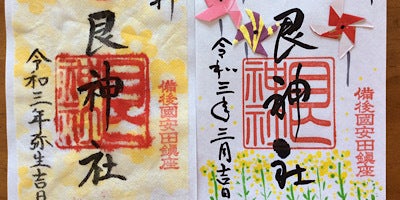 備後國安田鎮座
艮神社
令和三年弥生吉日
備後國安田鎮座
艮神社
令和三年三月吉日